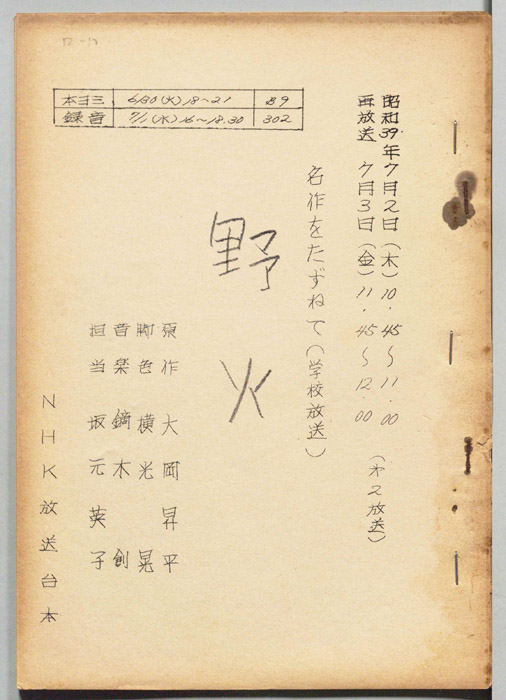 本ヨミ 6/30(火)18~21 89
録音 7/1(水)16~18.30 302
昭和39年7月2日(木)10.45~11.00
再放送 7月3日(金)11.45~12.00
(第2放送)
名作をたずねて(学校放送)
野火
原作 大岡昇平
脚色 横光晃
音楽 鏑木創
担当 坂元英子
NHK放送台本